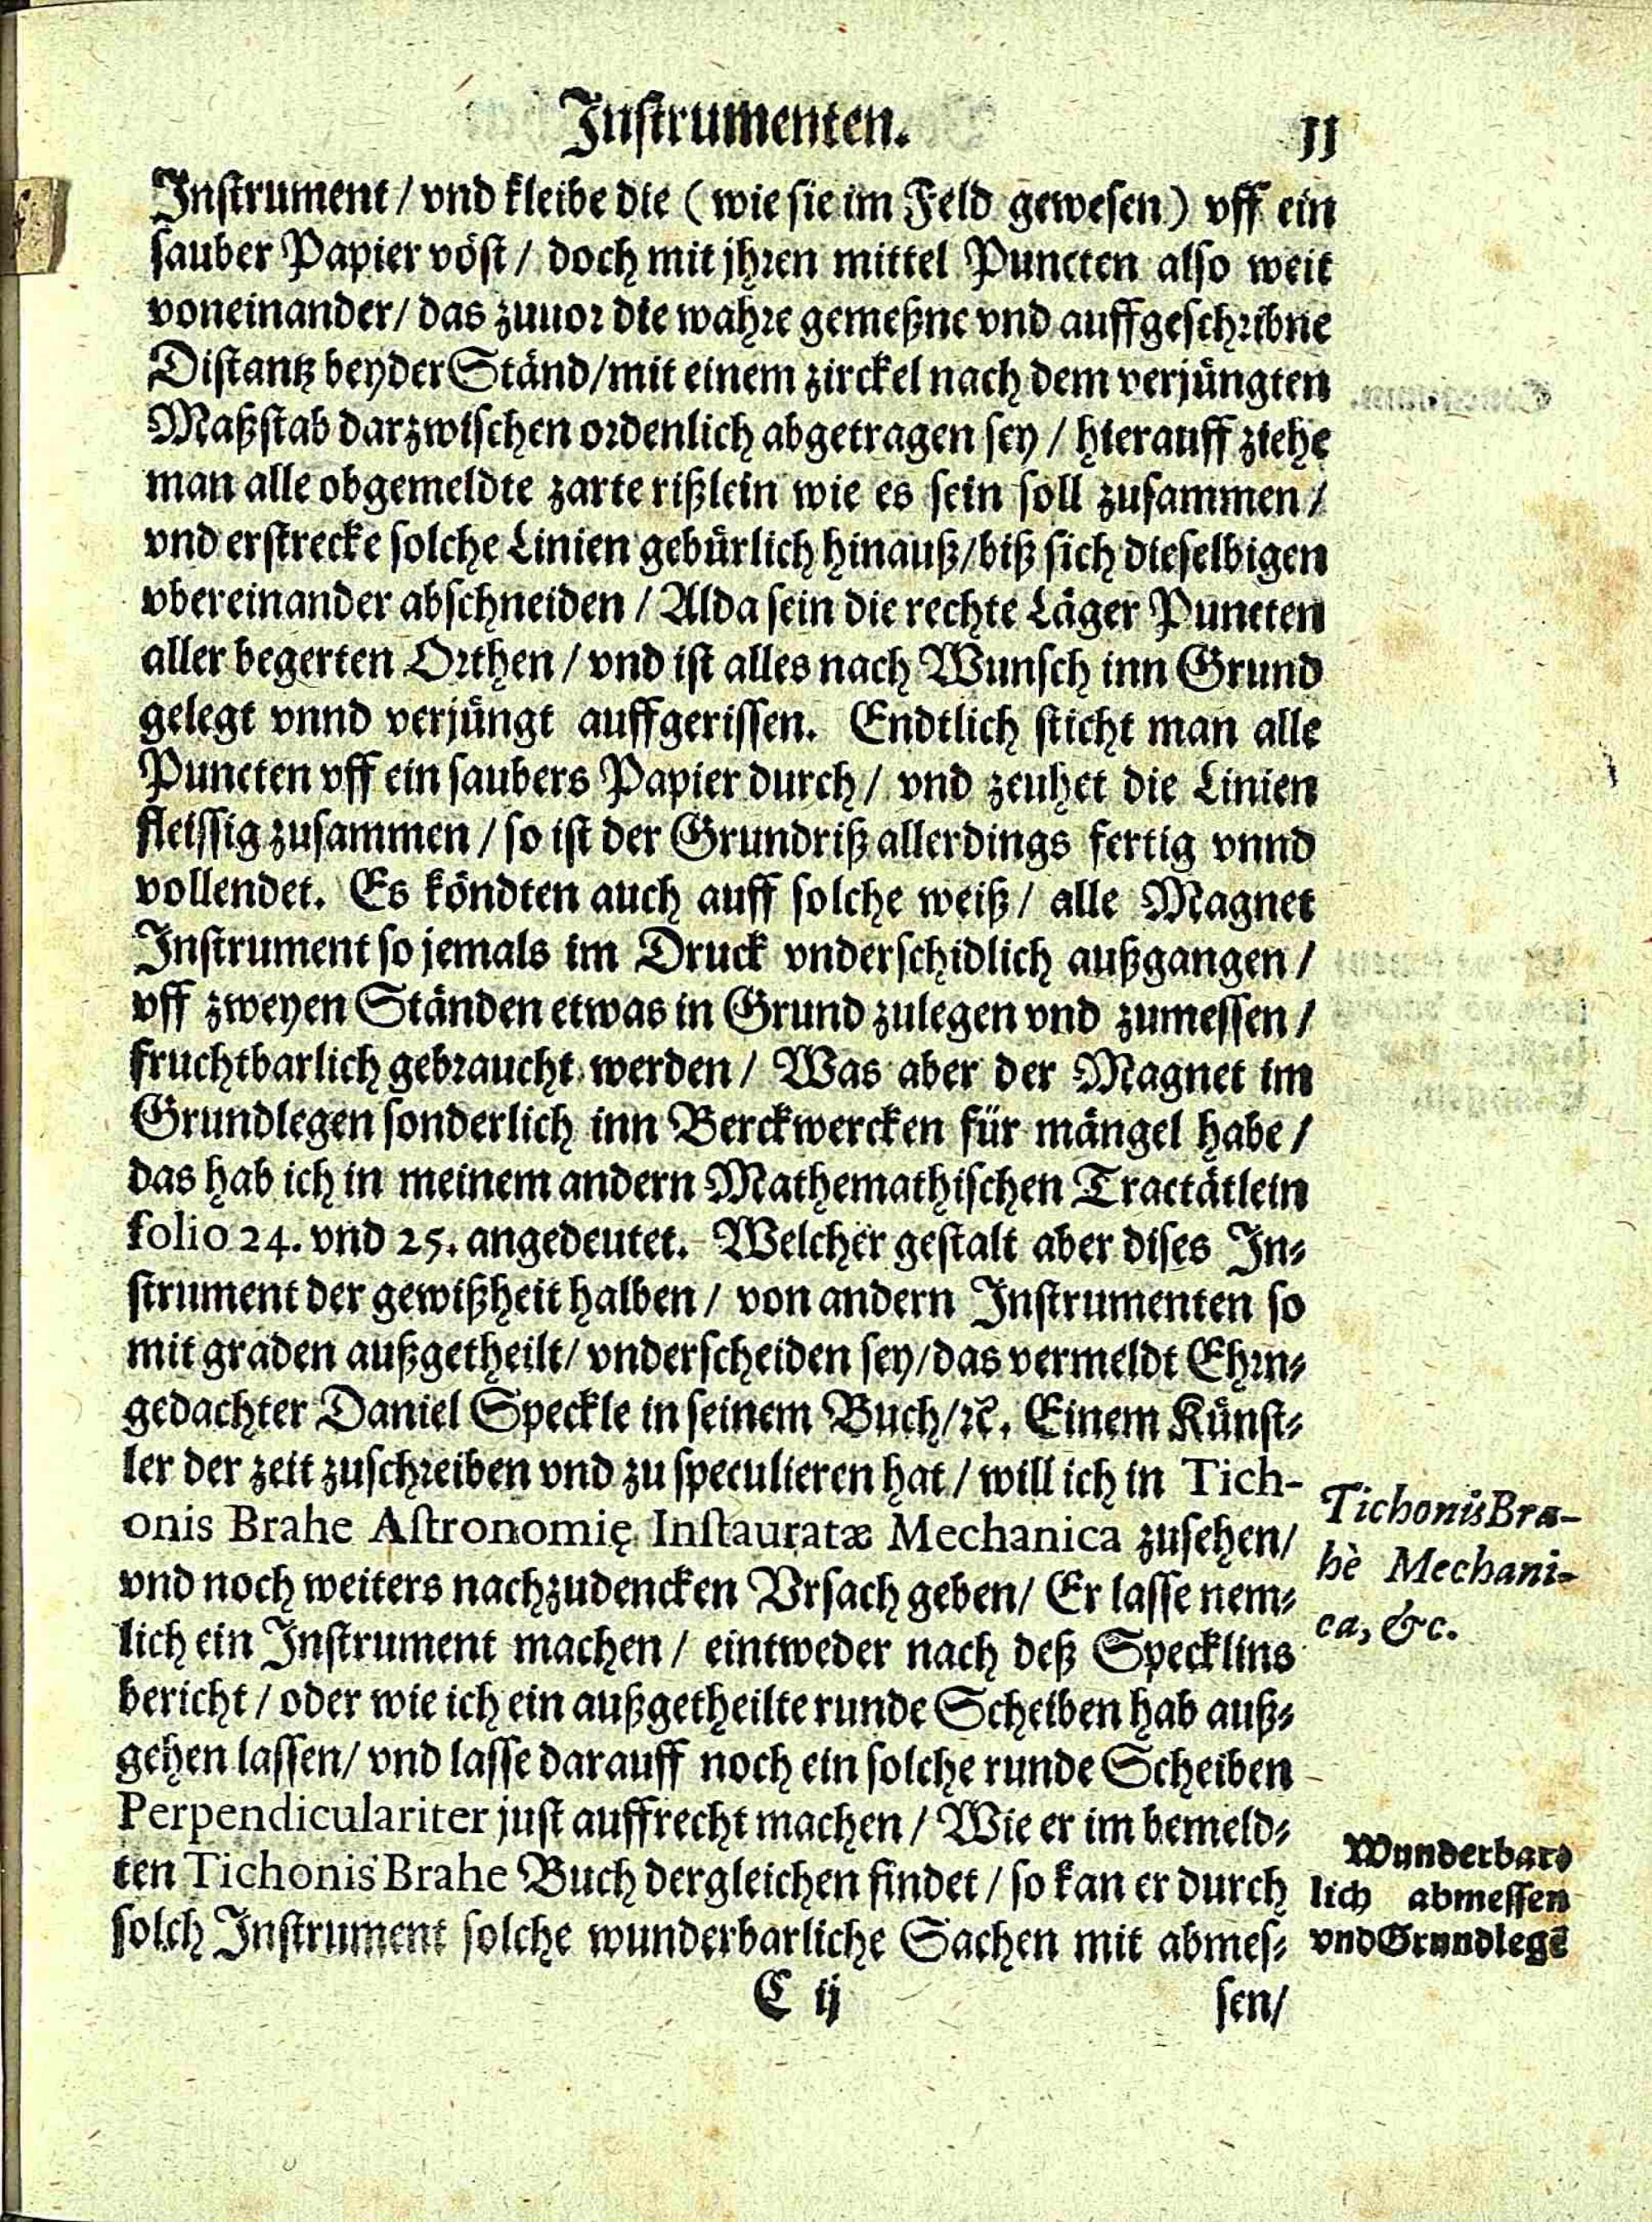 Instrumenten. 11
Instrument / vnd kleibe die ( wie sie im Feld gewesen ) vff ein
sauber Papier vöst / doch mit jhren mittel Puncten also weit
voneinander / das zuuor die wahre gemeßne vnd auffgeschribne
Distantz beyder Ständ / mit einem zirckel nach dem verjüngten
Maßstab darzwischen ordenlich abgetragen sey / hierauff ziehe
man alle obgemeldte zarte rißlein wie es sein soll zusammen /
vnd erstrecke solche Linien gebürlich hinauß / biß sich dieselbigen
vbereinander abschneiden / Alda sein die rechte Läger Puncten
aller begerten Orthen / vnd ist alles nach Wunsch inn Grund
gelegt vnnd verjüngt auffgerissen. Endtlich sticht man alle
Puncten vff ein saubers Papier durch / vnd zeuhet die Linien
fleissig zusammen / so ist der Grundriß allerdings fertig vnnd
vollendet. Es köndten auch auff solche weiß / alle Magnet
Instrument so jemals im Druck vnderschidlich außgangen /
vff zweyen Ständen etwas in Grund zulegen vnd zumessen /
fruchtbarlich gebraucht werden / Was aber der Magnet im
Grundlegen sonderlich inn Berckwercken für mängel habe /
das hab ich in meinem andern Mathemathischen Tractätlein
folio 24. vnd 25. angedeutet. Welcher gestalt aber dises In-
strument der gewißheit halben / von andern Instrumenten so
mit graden außgetheilt / vnderscheiden sey / das vermeldt Ehrn-
gedachter Daniel Speckle in seinem Buch / ꝛc. Einem Künst-
ler der zeit zuschreiben vnd zu speculieren hat / will ich in Tich-
onis Brahe Astronomię Instauratæ Mechanica zusehen /
vnd noch weiters nachzudencken Vrsach geben / Er lasse nem-
lich ein Instrument machen / eintweder nach deß Specklins
bericht / oder wie ich ein außgetheilte runde Scheiben hab auß-
gehen lassen / vnd lasse darauff noch ein solche runde Scheiben
Perpendiculariter just auffrecht machen / Wie er im bemeld-
ten Tichonis Brahe Buch dergleichen findet / so kan er durch
solch Instrument solche wunderbarliche Sachen mit abmes-
C ij sen /
Tichonis Bra-
hè Mechani-
ca, &c.
Wunderbar-
lich abmessen
vnd Grundlegē